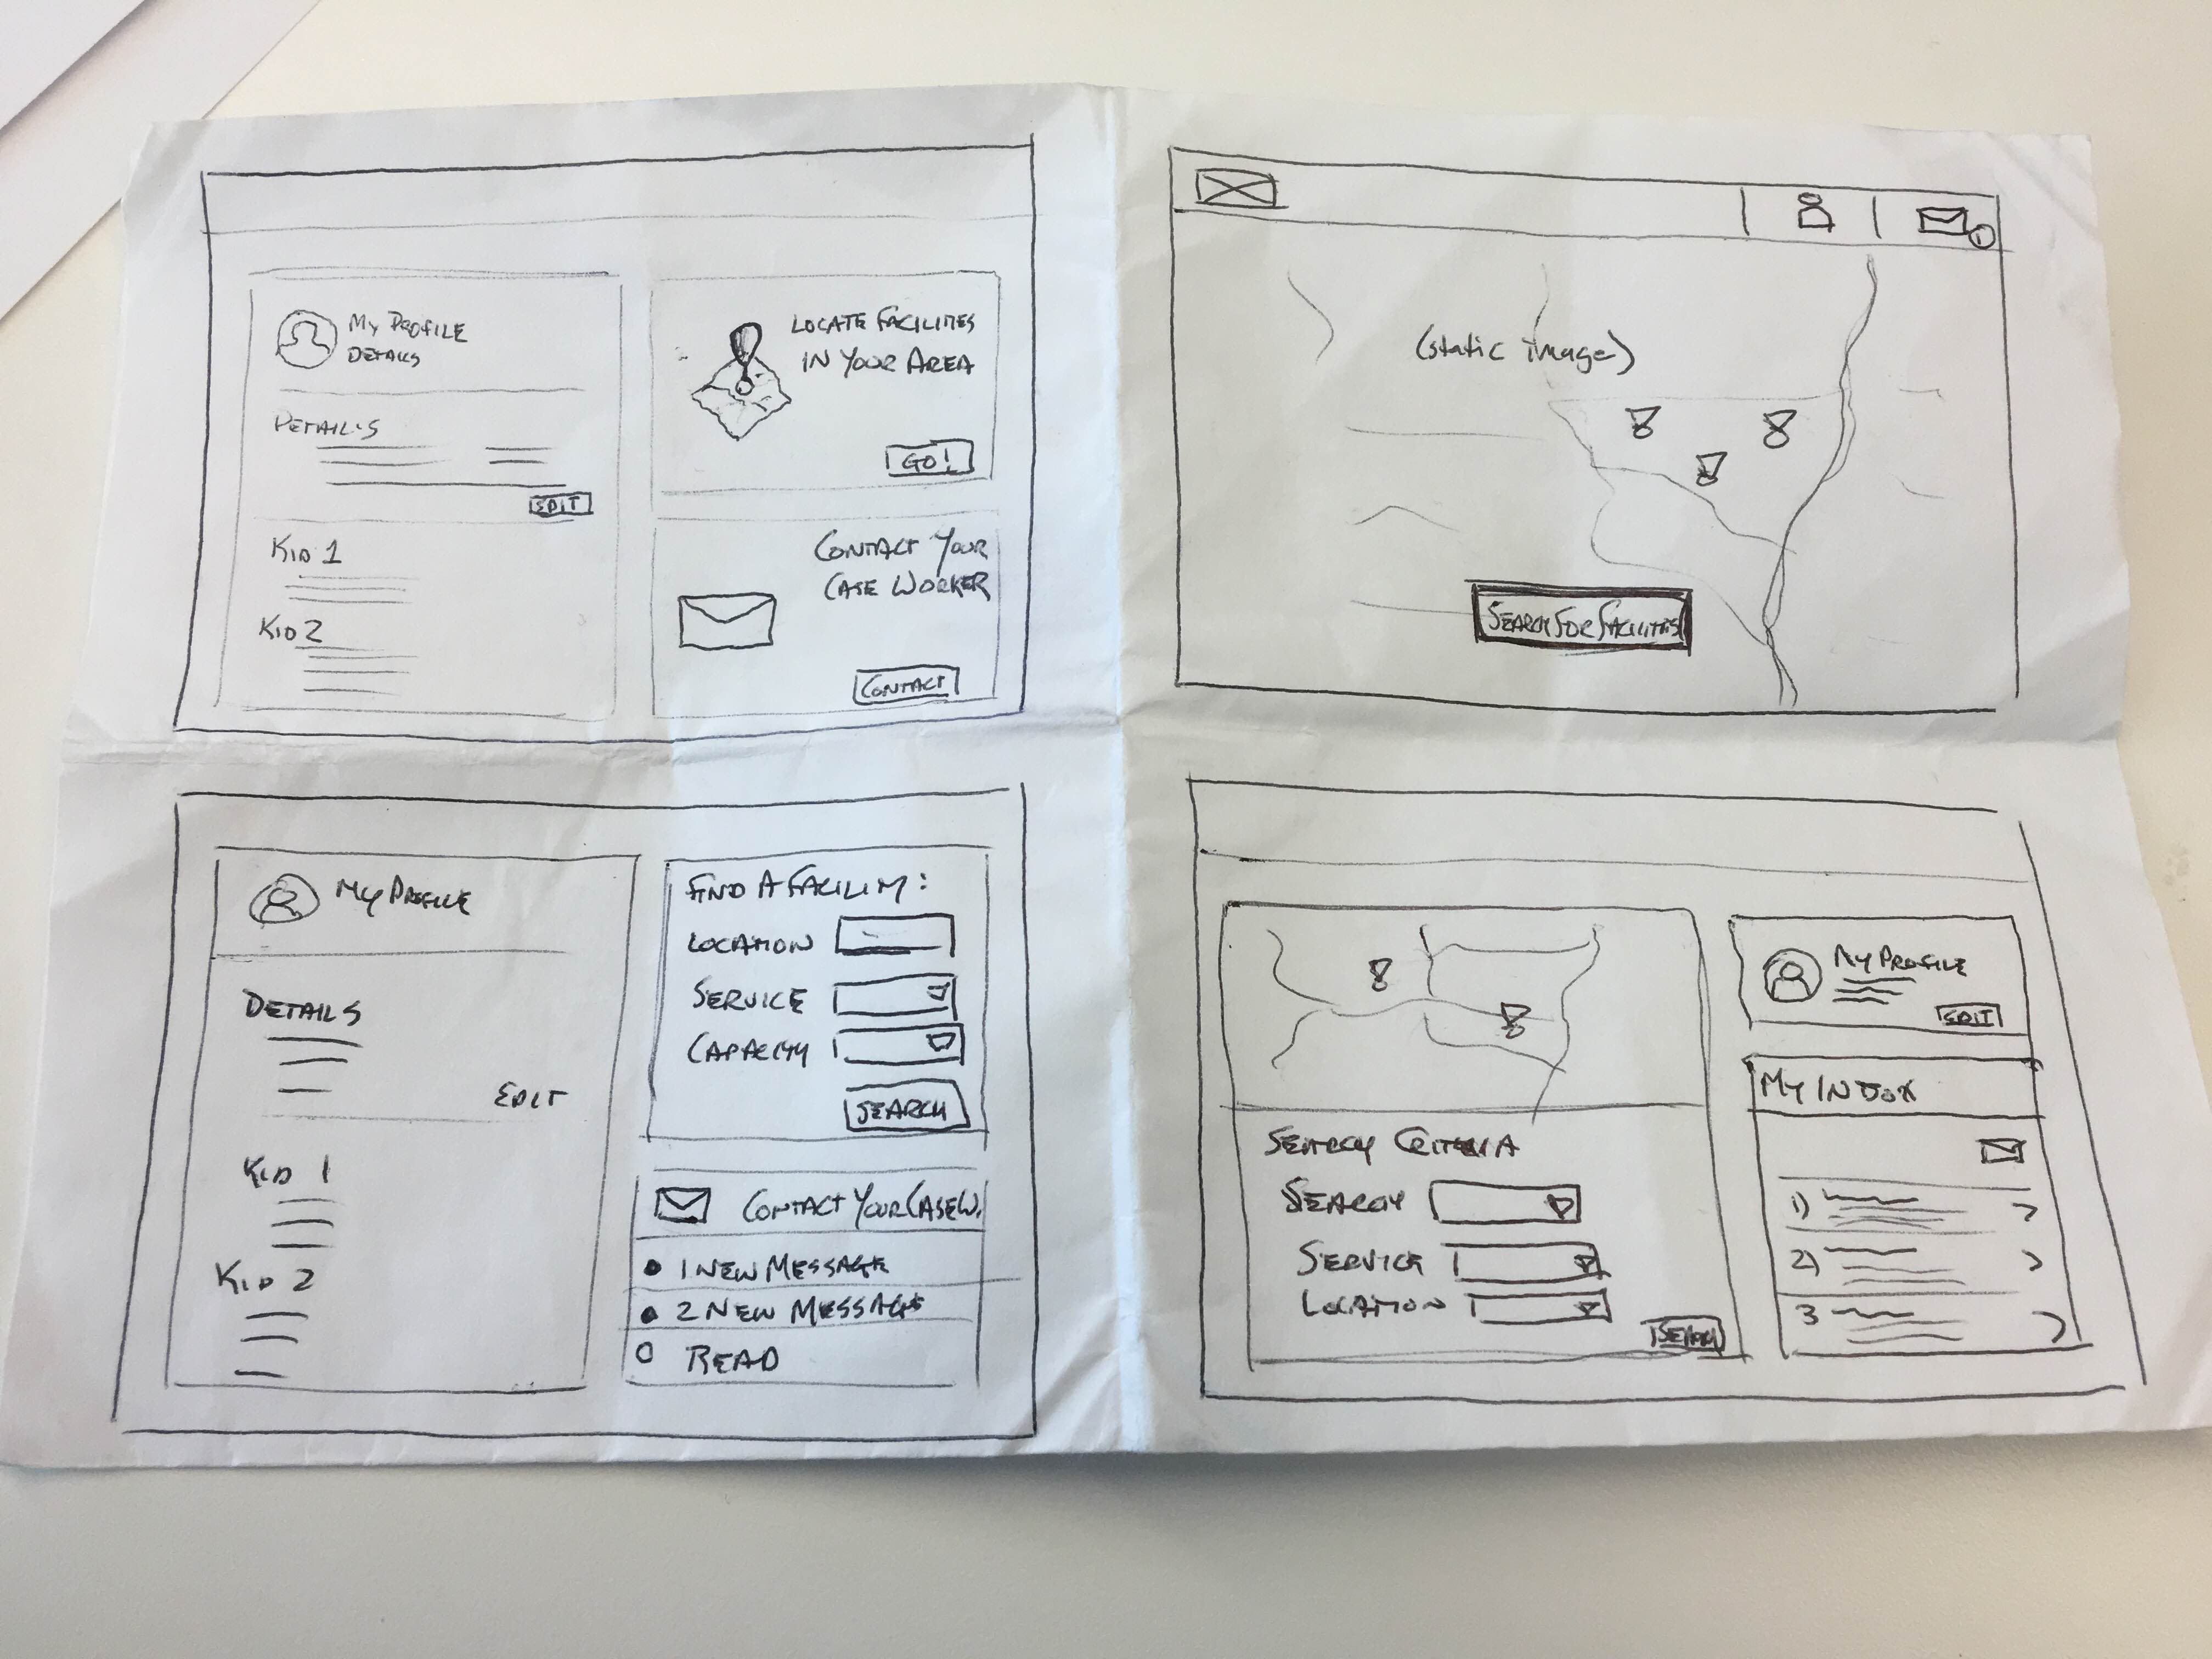 MY PROFILE
DETAILS
DETAILS
EDIT
KID 1
KID 2
LOCATE FACILITIES
IN YOUR AREA
GO!
CONTACT YOUR
CASE WORKER
CONTACT
(static image)
SEARCH FOR FACILITIES
MY PROFILE
DETAILS
EDIT
KID 1
KID 2
FIND A FACILITY:
LOCATION
SERVICE
CAPACITY
SEARCH
CONTACT YOUR CASE W.
1 NEW MESSAGE
2 NEW MESSAGE
READ
SEARCH CRITERIA
SEARCH
SERVICE
LOCATION
SEARCH
MY PROFILE
EDIT
MY INBOX
1)
2)
3